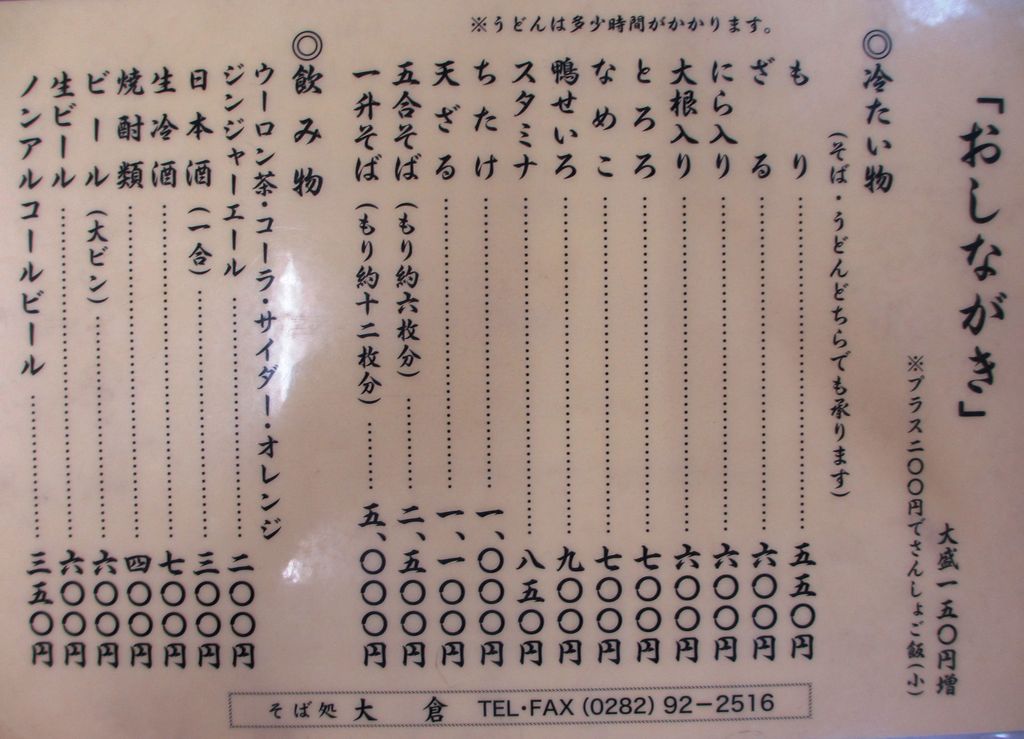 「おしながき」
大盛一五〇円増
※プラス二〇〇円でさんしょご飯(小)
◎冷たい物
(そば・うどんどちらでも承ります)
もり……五五〇円
ざる……六〇〇円
にら入り……六〇〇円
大根入り……六〇〇円
とろろ……七〇〇円
なめこ……七〇〇円
鴨せいろ……九〇〇円
スタミナ……八五〇円
ちたけ……一、〇〇〇円
天ざる……一、一〇〇円
五合そば(もり約六枚分)……二、五〇〇円
一升そば(もり約十二枚分)……五、〇〇〇円
※うどんは多少時間がかかります。
◎飲み物
ウーロン茶・コーラ・サイダー・オレンジ
ジンジャーエール……二〇〇円
日本酒(一合)……三〇〇円
生冷酒……七〇〇円
焼酎類……四〇〇円
ビール(大ビン)……六〇〇円
生ビール……六〇〇円
ノンアルコールビール……三五〇円
そば処 大倉 TEL・FAX (0282) 92−2516